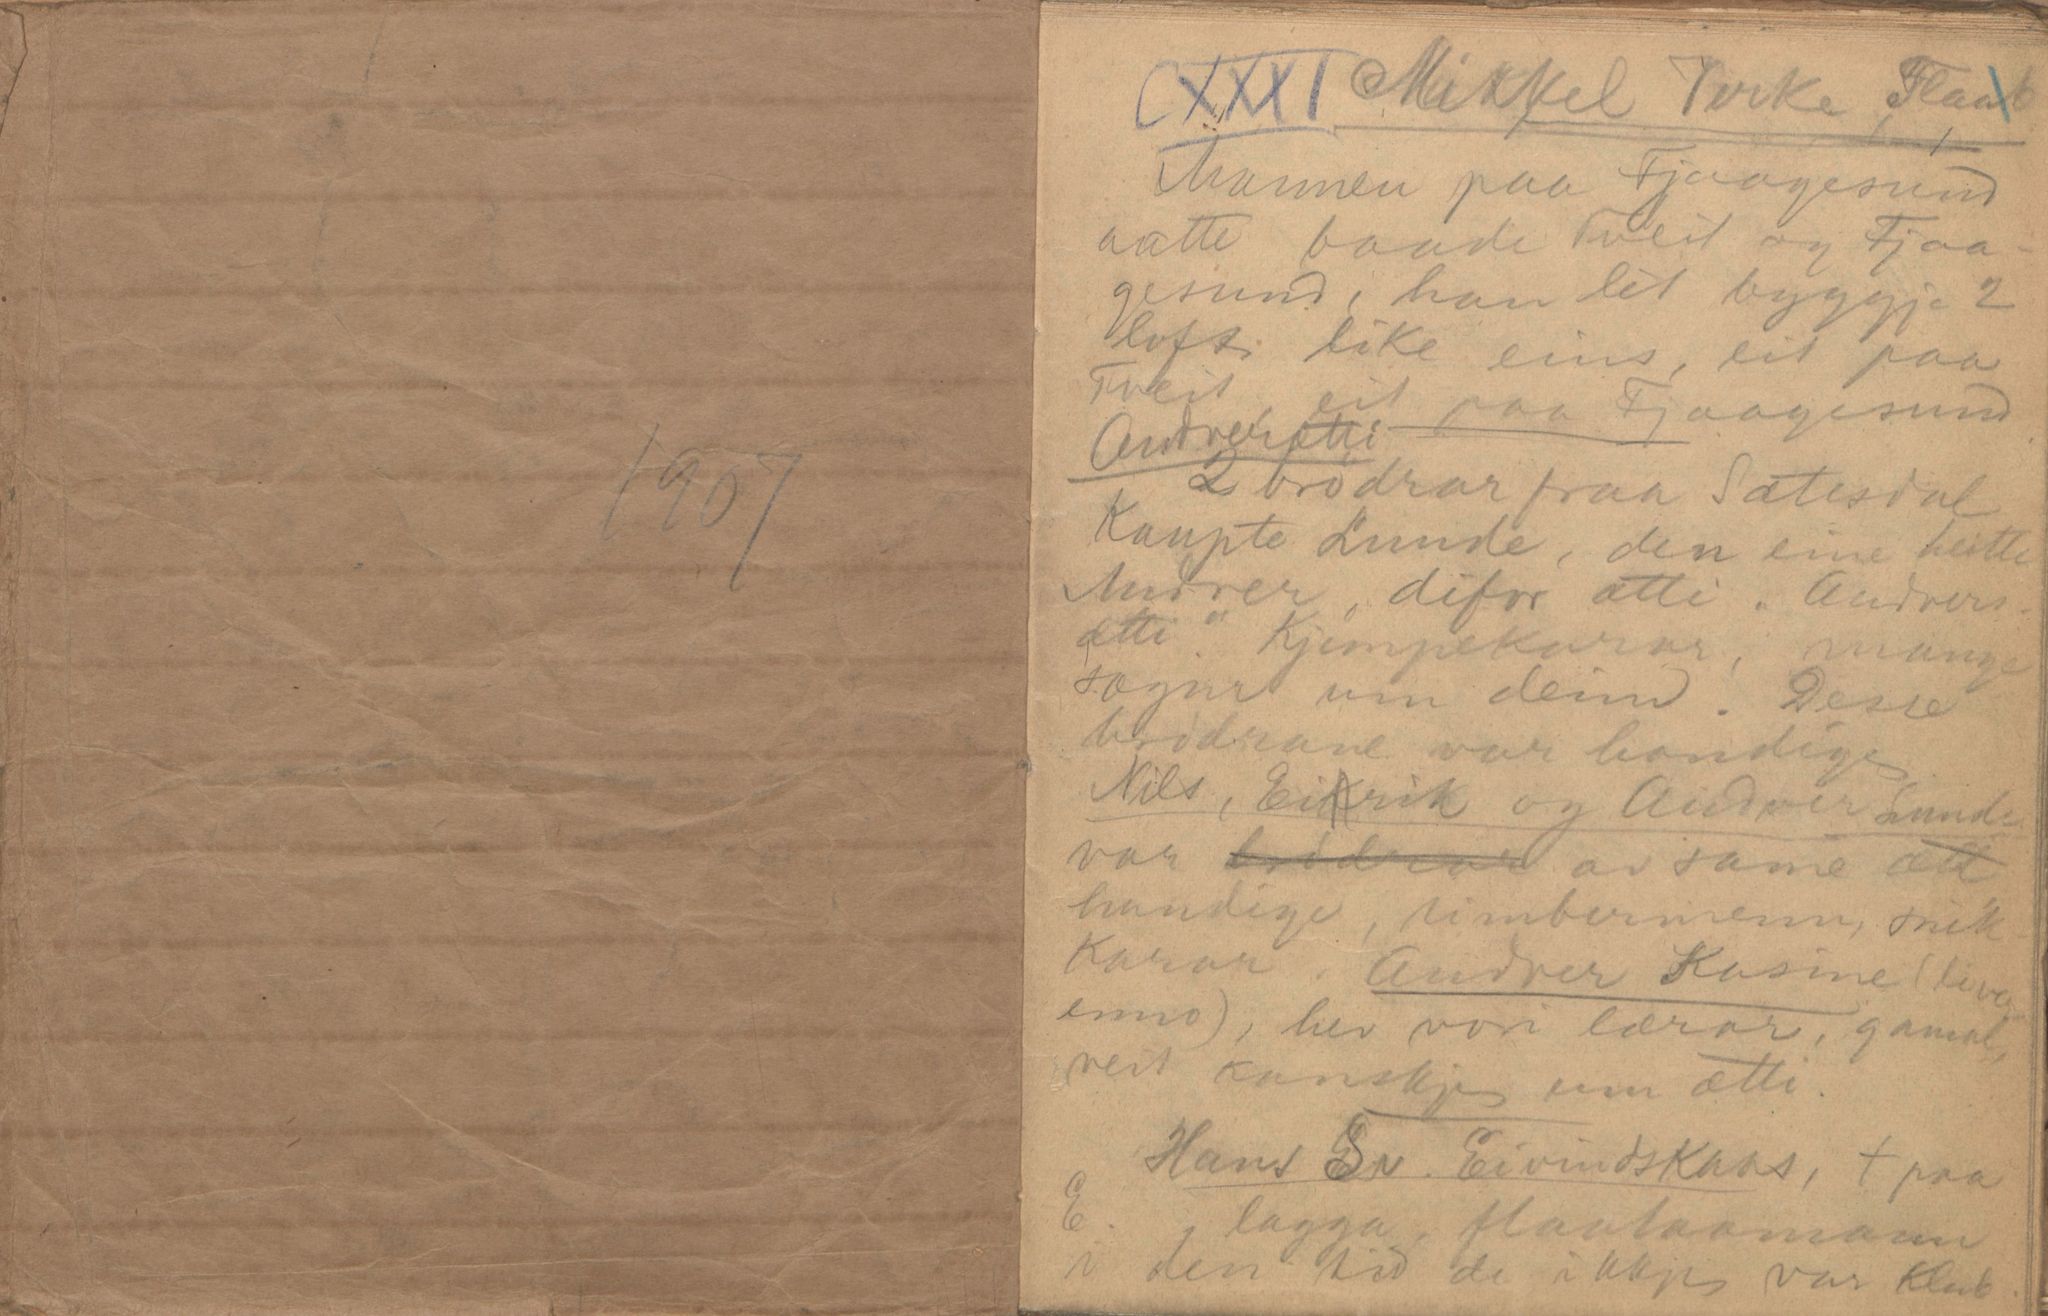 1907
CXXXI Mikkel Virke Flaab
Mannen paa Fjaagesund
aatte baade Tveit og Fjaa-
gesund, han let byggje 2
loft like eins, eit paa
Tveit, eit paa Fjaagesund.
Andverætti
2 brødrar fraa Sætesdal
Kaupte Lunde, den eine heitte
Andver, difor ætti "Andvers-
ætti". Kjempekarar, mange
sogur um deim. Desse
brødrane var handige
Nils, Eirik og Andver Lunde
var brødrar av same ætt
handige, timbermenn, snik-
karar. Andver Kasine (liver
enno), hev vori lærar, gamal,
veit kanskje um ætti.
Hans Ev. Eivindskaas, † paa
E., lagga, flaataamann
i den tid de ikkje var klub